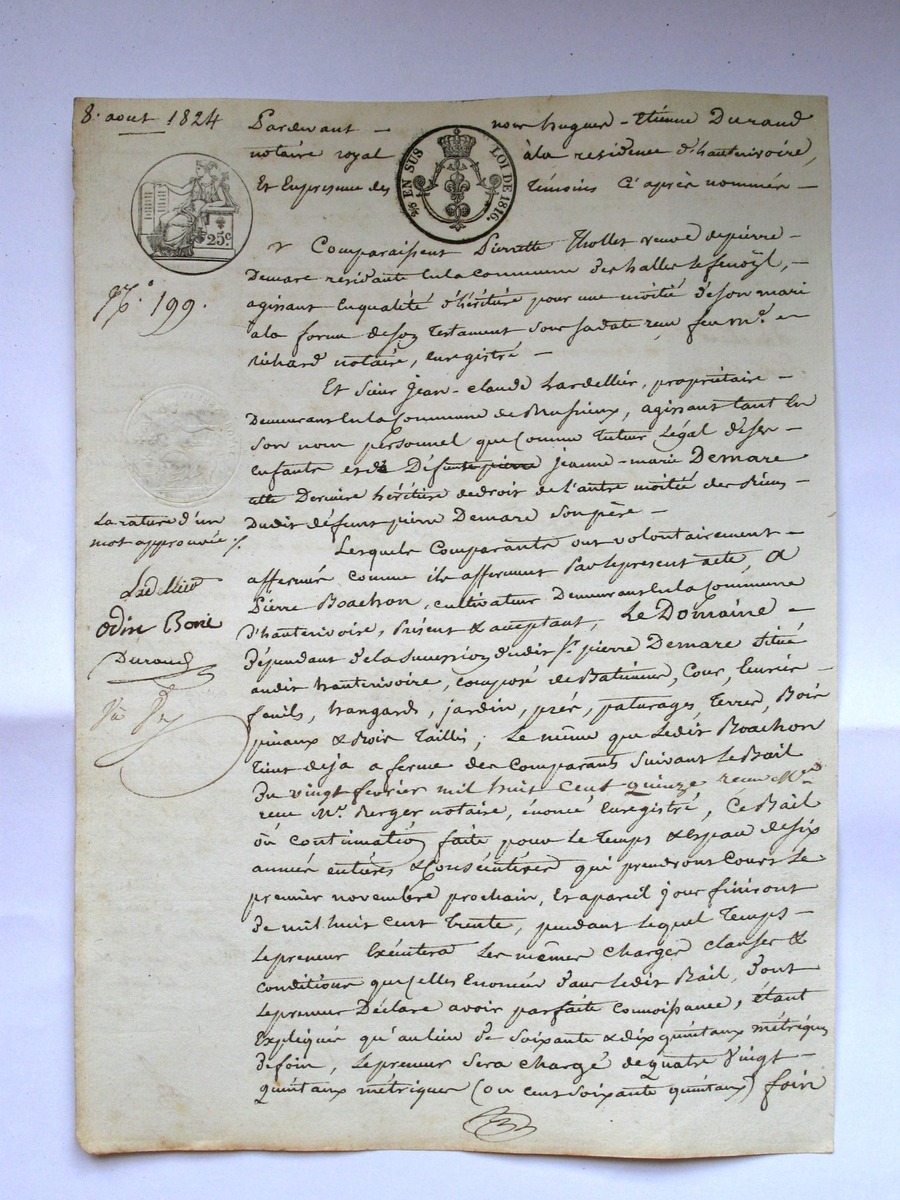 8. aout 1824
Pardevant – nous hugues-Etiénne Durand
notaire royal à la residence d'hauterivoire,
Et En presence des témoins Ci après nommés –
EN SUS LOI DE 1816.
25c
N.º 199.
Comparaissent Pierrette Thollet veuve de pierre –
Demare résidante En la commune des halles le fenoÿl, –
agissant En qualité d'hérétiére pour une moitié de son mari
a la forme de son testament sous sa date reçu feu m.e
richard notaire, Enregistré –
Et Sieur Jean-claude Lardellier, propriétaire –
Demeurant En la Commune de Brussieux, agissant tant En
son nom personnel que Comme tuteur Légal de ses
enfants et de Défunte pierre jeanne-marie Demare
elle Derniere hérétiére de droit de l'autre moitié des biens –
Dudit défunt pierre Demare Son pére –
La rature d'un
mot approuvée ./.
Lardellier
odin Boné
Durand
Lesquels Comparants ont volontairement –
affermé comme ils afferment Par le present acte, a
Pierre Boachon, cultivateur Demeurant En la Commune
d'hauterivoire, Présent & acceptant, Le Domaine –
dépendant de la succession dudit S.r pierre Demare Situé
audit hauterivoire, composé de Batiments, Cour, Ecurie –
fenils, hangards, jardin, prés, paturages, Terres, Bois
pinaux & Bois Taillis; Le même que Ledit Boachon
tient deja a ferme des Comparants Suivant Le Bail
du vingt fevrier mil huit Cent quinze reçu M.e
reçu M.e Berger notaire, énoncé Enregistré, Ce Bail
ou Continuation faite pour Le Temps & Espace de Six
années entiéres & Consécutives qui prendront Cours Le
premier novembre prochain, Et a pareil jour finiront
de mil huit cent trente, pendant Lequel Temps –
Le preneur Exécutera Les mêmes charges clauses &
conditions que celles Enoncées dans Ledit Bail, dont
Le preneur Déclare avoir parfaite connoissance, étant
Expliqué qu'au lieu de Soixante & dix quintaux métriques
de foin, Le preneur Sera chargé de quatre Vingt –
quintaux métriques (ou cent soixante quintaux) foin